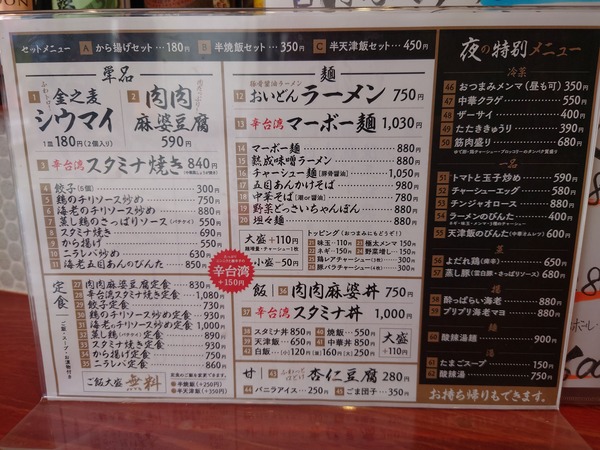 セットメニュー A から揚げセット…180円 B 半焼飯セット…350円 C 半天津飯セット…450円
単品
1 金之麦シウマイ
1皿180円(2個入り)
2 肉肉麻婆豆腐
590円
3 辛台湾スタミナ焼き 840円
4 餃子(5個) 300円
5 鶏のチリソース炒め 750円
6 海老のチリソース炒め 880円
7 蒸し鶏のさっぱりソース(バタデイ) 550円
8 スタミナ焼き 690円
9 から揚げ 550円
10 ニラレバ炒め 630円
11 海老五目あんのびたん 850円
定食
ご飯・スープ・お漬物付き
27 肉肉麻婆豆腐定食 830円
28 辛台湾スタミナ焼き定食 1,080円
29 餃子定食 730円
30 鶏のチリソース炒め定食 930円
31 海老のチリソース炒め定食 1,000円
32 蒸し鶏(バタデイ)定食 890円
33 スタミナ焼き定食 930円
34 から揚げ定食 750円
35 ニラレバ定食 860円
ご飯大盛 無料
定食のご飯を変更できます。
半焼飯(+250円)
半天津飯(+350円)
麺
豚骨醤油ラーメン
12 おいどんラーメン 750円
13 辛台湾マーボー麺 1,030円
14 マーボー麺 880円
15 熟成味噌ラーメン 880円
16 チャーシュー麺(豚骨醤油) 1,050円
17 五目あんかけそば 980円
18 中華そば(潮or醤油) 780円
19 野菜どっさいちゃんぽん 880円
20 坦々麺 880円
大盛+110円
麺増量・チャーシュー1枚
小盛−50円
トッピング(おつまみにもどうぞ!)
21 味玉…110円 23 極太メンマ 150円
22 ネギ…150円 24 野菜増し…150円
25 鶏レアチャーシュー(3枚)…330円
26 豚バラチャーシュー(4枚)…330円
辛台湾
+150円
飯
36 肉肉麻婆丼 750円
37 辛台湾スタミナ丼 1,000円
38 スタミナ丼 850円 40 焼飯…550円
39 天津飯…650円 41 中華丼…850円
42 白飯…(小)120円(並)160円(大)250円
大盛
+110円
甘
43 杏仁豆腐 280円
44 バニラアイス…250円 45 ごま団子…350円
夜の特別メニュー
冷菜
46 おつまみメンマ(昼も可)350円
47 中華クラゲ 550円
48 ザーサイ 400円
49 たたききゅうり 390円
50 筋肉盛り 680円
一品
51 トマトと玉子炒め 590円
52 チャーシューエッグ 580円
53 チンジャオロース 880円
54 ラーメンのびたん 400円
55 天津飯のびたん(中華さんルツ) 600円
蒸
56 よだれ鶏(痺辛) 650円
57 蒸し豚(雲白豚・さっぱりソース) 680円
揚
58 酔っぱらい海老 880円
59 プリプリ海老マヨ 880円
麺
60 酸辣湯麺 900円
湯
61 たまごスープ 150円
62 酸辣湯 750円
お持ち帰りもできます。